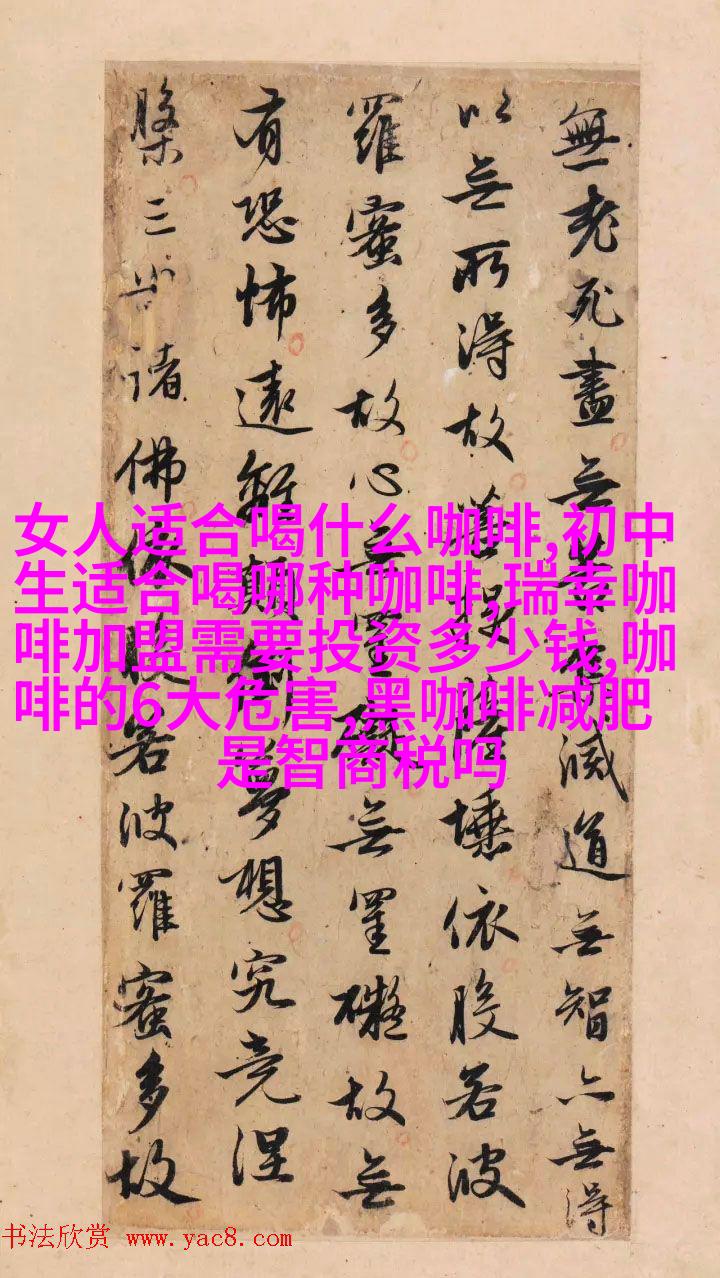 無老死盡无苦集滅道无智亦无得
以无所得故菩提薩埵依般若波
羅蜜多故心无罣礙无罣礙故无
有恐怖遠離顛倒夢想究竟涅
槃三世諸佛依般若波羅蜜多故
女人适合喝什么咖啡,初中
生适合喝哪种咖啡,瑞幸咖
啡加盟需要投资多少钱,咖
啡的6大危害,黑咖啡减肥
是智商税吗
书法欣赏 www.yac8.com